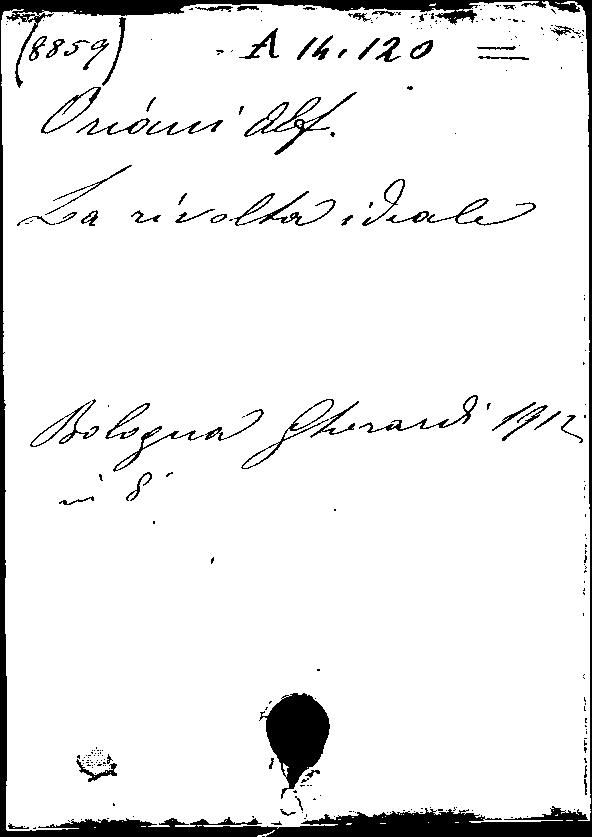 (8859) A 14.120
Oriani Alf.
La rivolta ideale
Bologna Gherardi 1912
in 8°